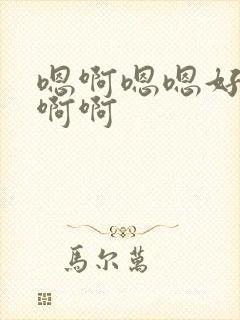 嗯啊嗯嗯好
啊啊
馬尔萬